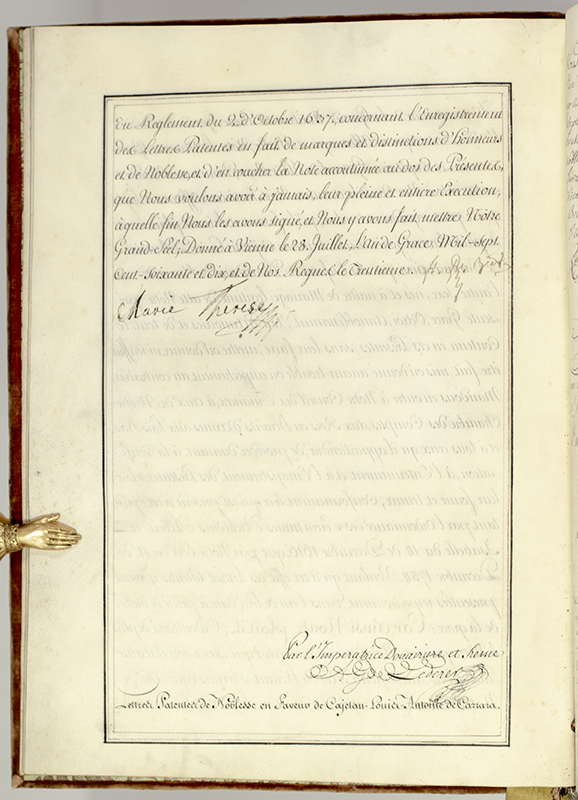 du Reglement du 2. d'Octobre 1637. concernant l'Enregistrement
des Lettres Patentes en fait de marques et distinctions d'honneurs
et de Noblesse, et d'en coucher la Note accoutumée au dos des Présentes,
que Nous voulons avoir à jamais, leur pleine et entiere Execution,
à quelle fin Nous les avons signé, et Nous y avons fait mettre Nôtre
Grand-Séel; Donné à Vienne le 28. Juillet, L'an de Grace, Mil-Sept
Cent-Soixante et dix, et de Nos Regnes le Trentieme.
Marie Therese
Par l'Imperatrice Douairiere et Reine
A G de Lederer
Lettres Patentes de Noblesse en Faveur de Cajetan-Louis-Antoine de Carrara.